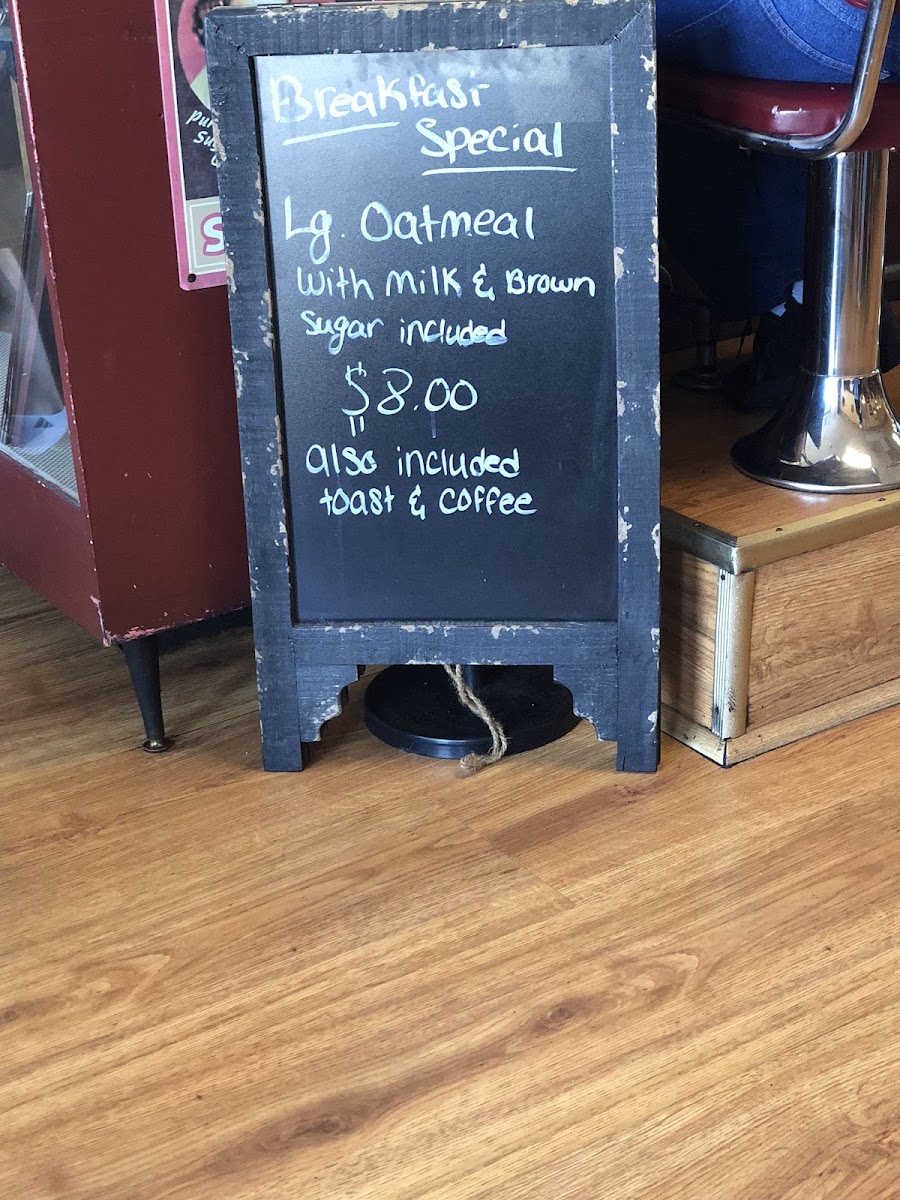 Breakfast
Special
Lg. Oatmeal
With Milk & Brown
Sugar included
$8.00
also included
toast & coffee